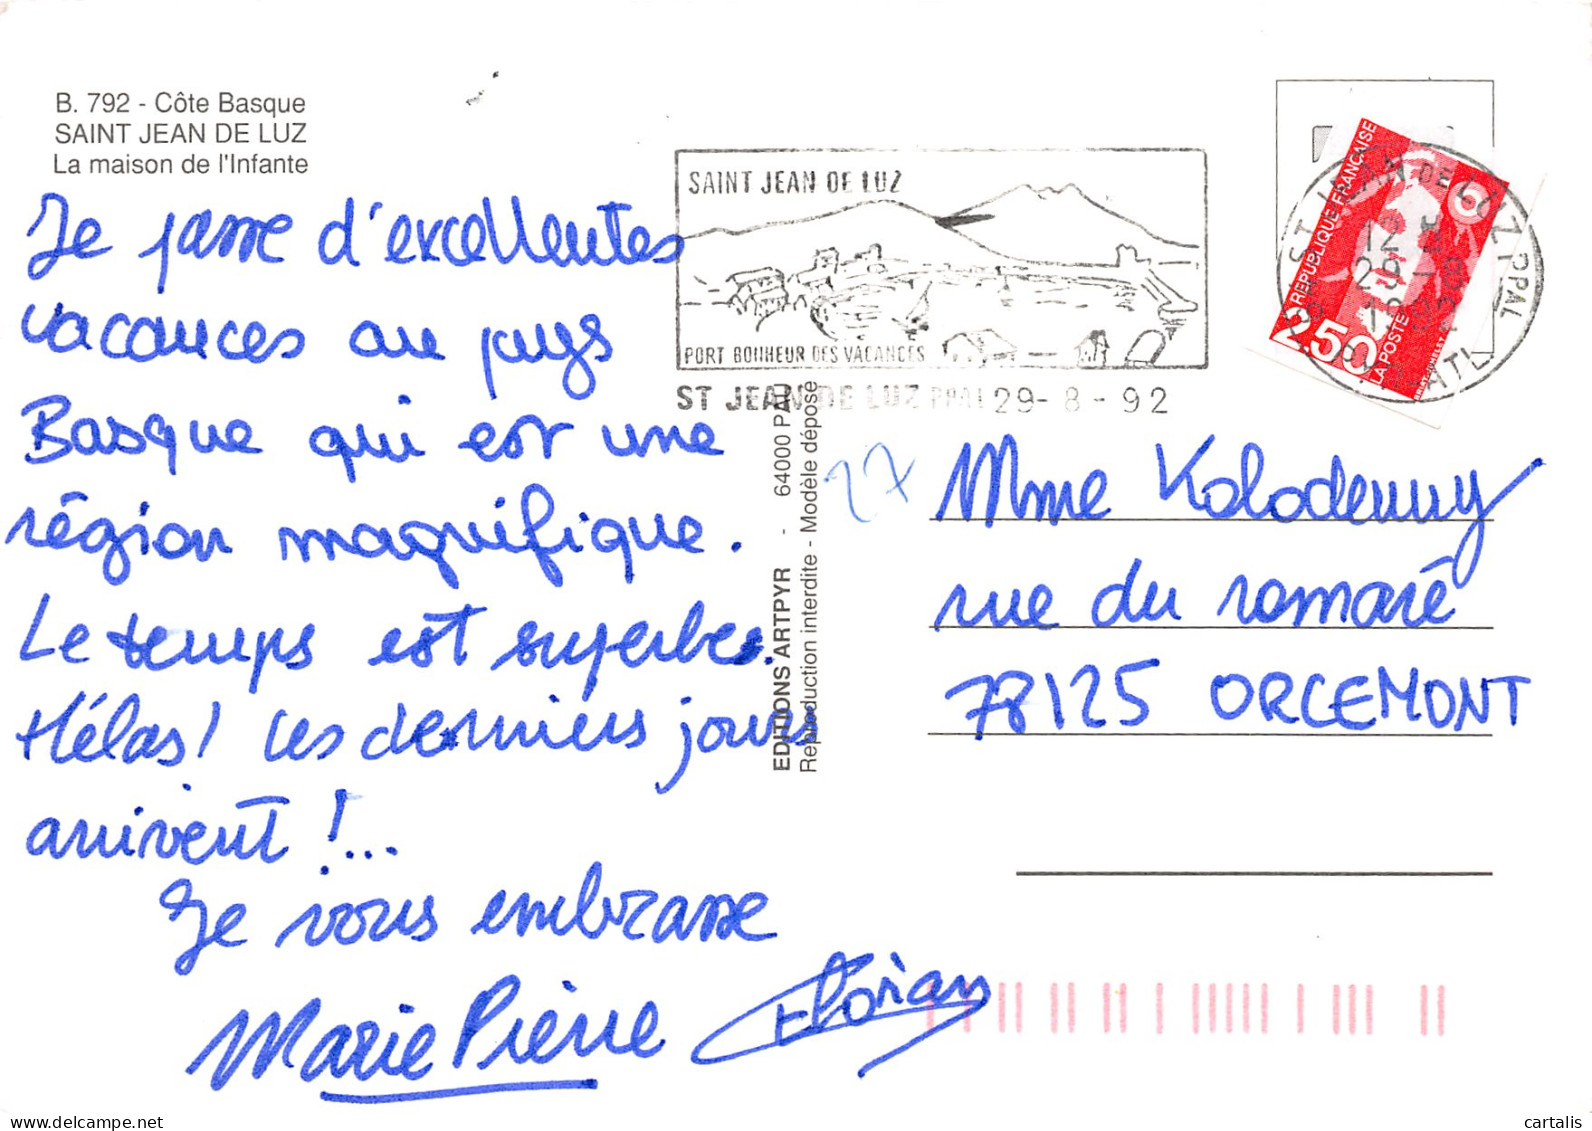 B. 792 - Côte Basque
SAINT JEAN DE LUZ
La maison de l'Infante
Je passe d'excellentes
vacances au pays
Basque qui est une
région magnifique.
Le temps est superbe.
Hélas! les derniers jours
arrivent !...
Je vous embrasse
Marie Pierre Florian
SAINT JEAN DE LUZ
PORT BONHEUR DES VACANCES
ST JEAN DE LUZ PPAL 29-8-92
EDITIONS ARTPYR - 64000 PAU
Reproduction interdite - Modèle déposé
27
REPUBLIQUE FRANÇAISE
2,50
LA POSTE
ST JEAN DE LUZ PPAL
Mme Kolodenny
rue du romaré
78125 ORCEMONT
delcampe.net
cartalis